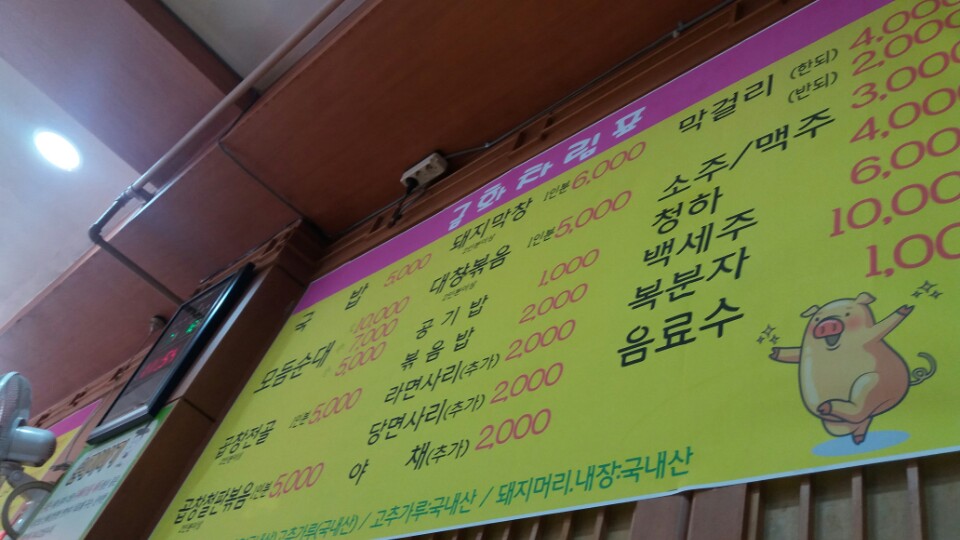 금화차림표
국 밥 5,000
모듬순대 10,000
7,000
5,000
곱창전골 1인분 5,000
곱창철판볶음 1인분 5,000
돼지막창 1인분 6,000
대창볶음 1인분 5,000
공 기 밥 1,000
볶 음 밥 2,000
라면사리(추가) 2,000
당면사리(추가) 2,000
야 채(추가) 2,000
막걸리 (한되) 4,000
(반되) 2,000
소주/맥주 3,000
청하 4,000
백세주 6,000
복분자 10,000
음료수 1,00
고추가루(국내산) / 고추가루:국내산 / 돼지머리.내장:국내산